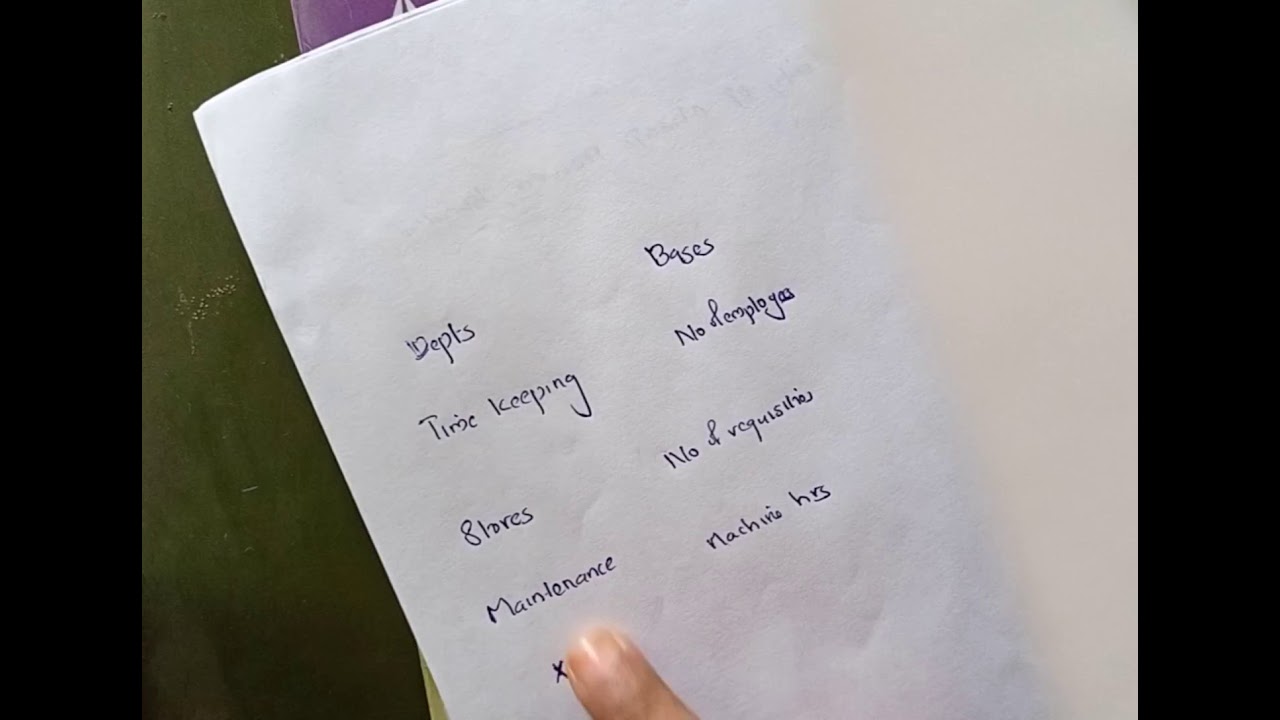 Depts Bases
Time keeping No of employees
Stores No of requisities
Maintenance Machine hrs
x